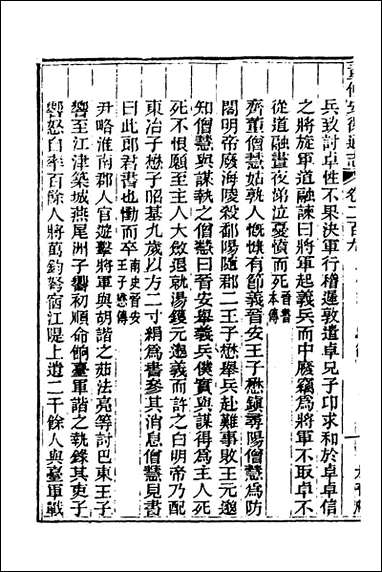 重修安徽通志 卷二百九
兵致討卓性不果決軍行稽遲敦遣卓兄子卬求和於卓卓信
之將旋軍道融諫曰將軍起義兵而中廢竊為將軍不取卓不
從道融晝夜涕泣憂憤而死晉書本傳
齊董僧慧姑孰人慨慷有節義晉安王子懋鎮尋陽僧慧為防
閤明帝廢海陵殺鄱陽隨郡二王子懋舉兵赴難事敗王元邈
知僧慧與謀執之僧慧曰晉安舉義兵僕實與謀得為主人死
死不恨願至主人大斂退就湯鑊元邈義而許之白明帝乃配
東冶子懋子昭基九歲以方二寸絹為書參其消息僧慧見書
曰此郎君書也慟而卒南史晉安王子懋傳
尹略淮南郡人官遊擊將軍與胡諧之茹法亮等討巴東王子
響至江津築城燕尾洲子響初順命餉臺軍諧之執錄其吏子
響怒白率百餘人將萬鈞弩宿江隄上遣二千餘人與臺軍戰